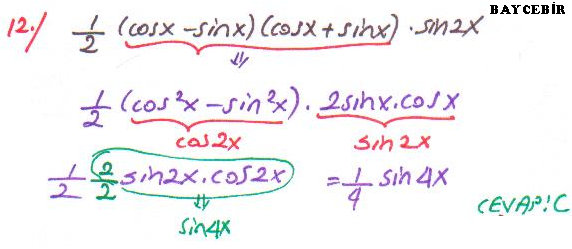 BAYCEBİR
12./ 1/2 (cosx - sinx)(cosx + sinx) . sin2x
⇓
1/2 (cos²x - sin²x) . 2sinx.cosx
cos2x sin2x
1/2 2/2 sin2x.cos2x = 1/4 sin4x
⇓
sin4x
CEVAP: C